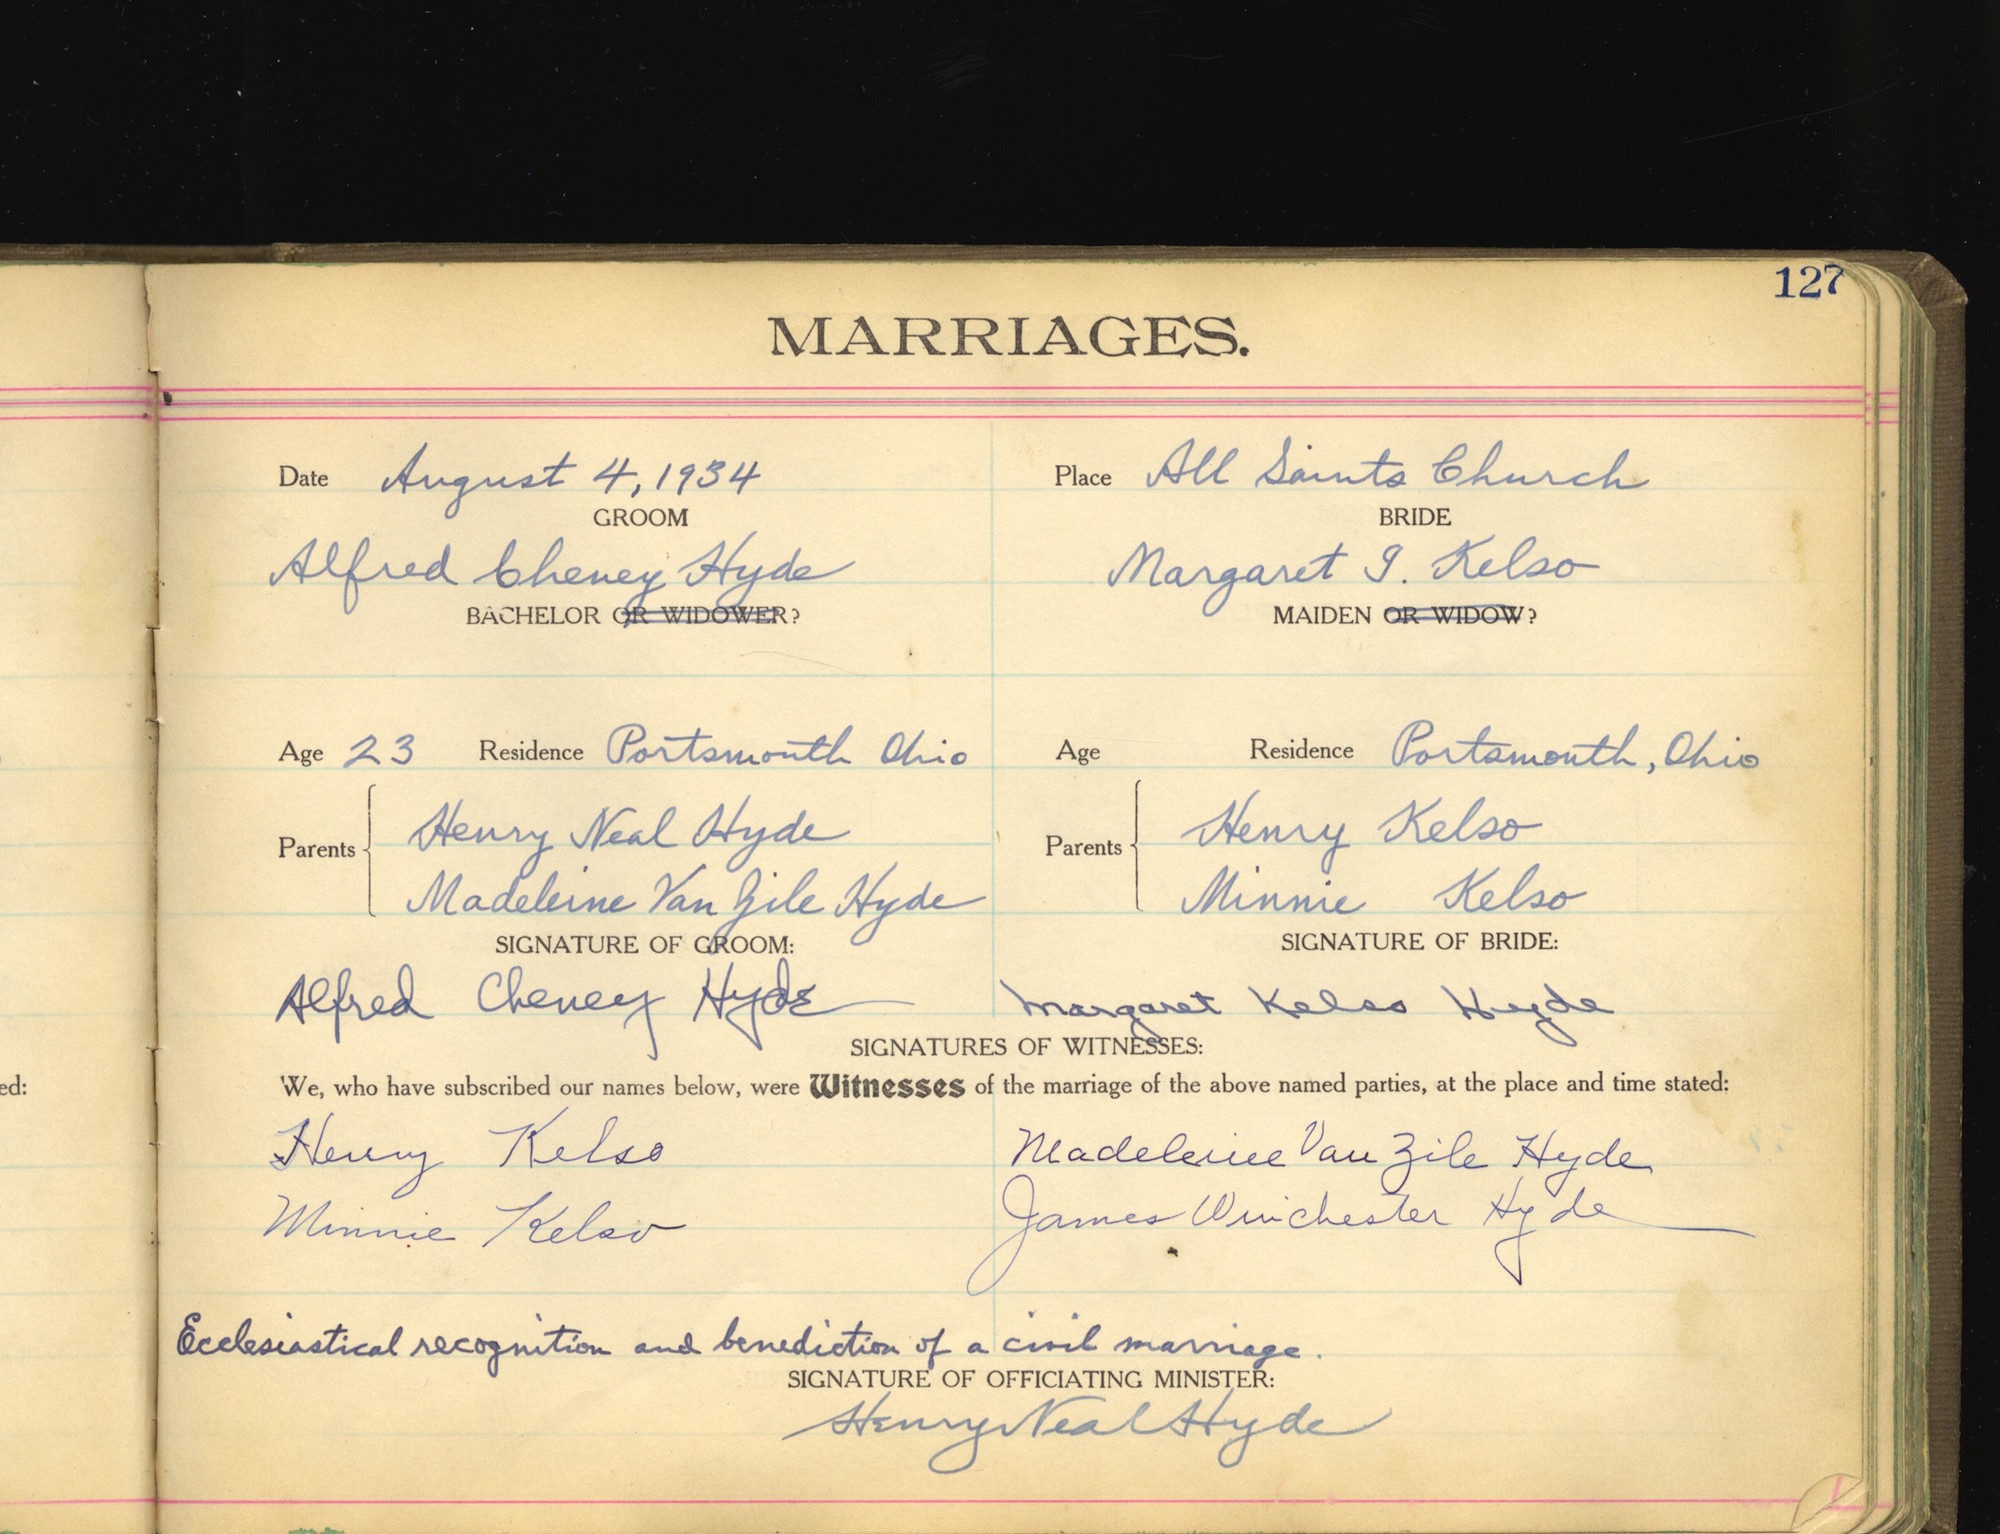 127
MARRIAGES.
Date August 4, 1934 Place All Saints Church
GROOM BRIDE
Alfred Cheney Hyde Margaret I. Kelso
BACHELOR OR WIDOWER? MAIDEN OR WIDOW?
Age 23 Residence Portsmouth Ohio Age Residence Portsmouth, Ohio
Henry Neal Hyde Henry Kelso
Parents Parents
Madeleine Van Zile Hyde Minnie Kelso
SIGNATURE OF GROOM: SIGNATURE OF BRIDE:
Alfred Cheney Hyde Margaret Kelso Hyde
SIGNATURES OF WITNESSES:
ed: We, who have subscribed our names below, were Witnesses of the marriage of the above named parties, at the place and time stated:
Henry Kelso Madeleine Van Zile Hyde
Minnie Kelso James Winchester Hyde
Ecclesiastical recognition and benediction of a civil marriage.
SIGNATURE OF OFFICIATING MINISTER:
Henry Neal Hyde